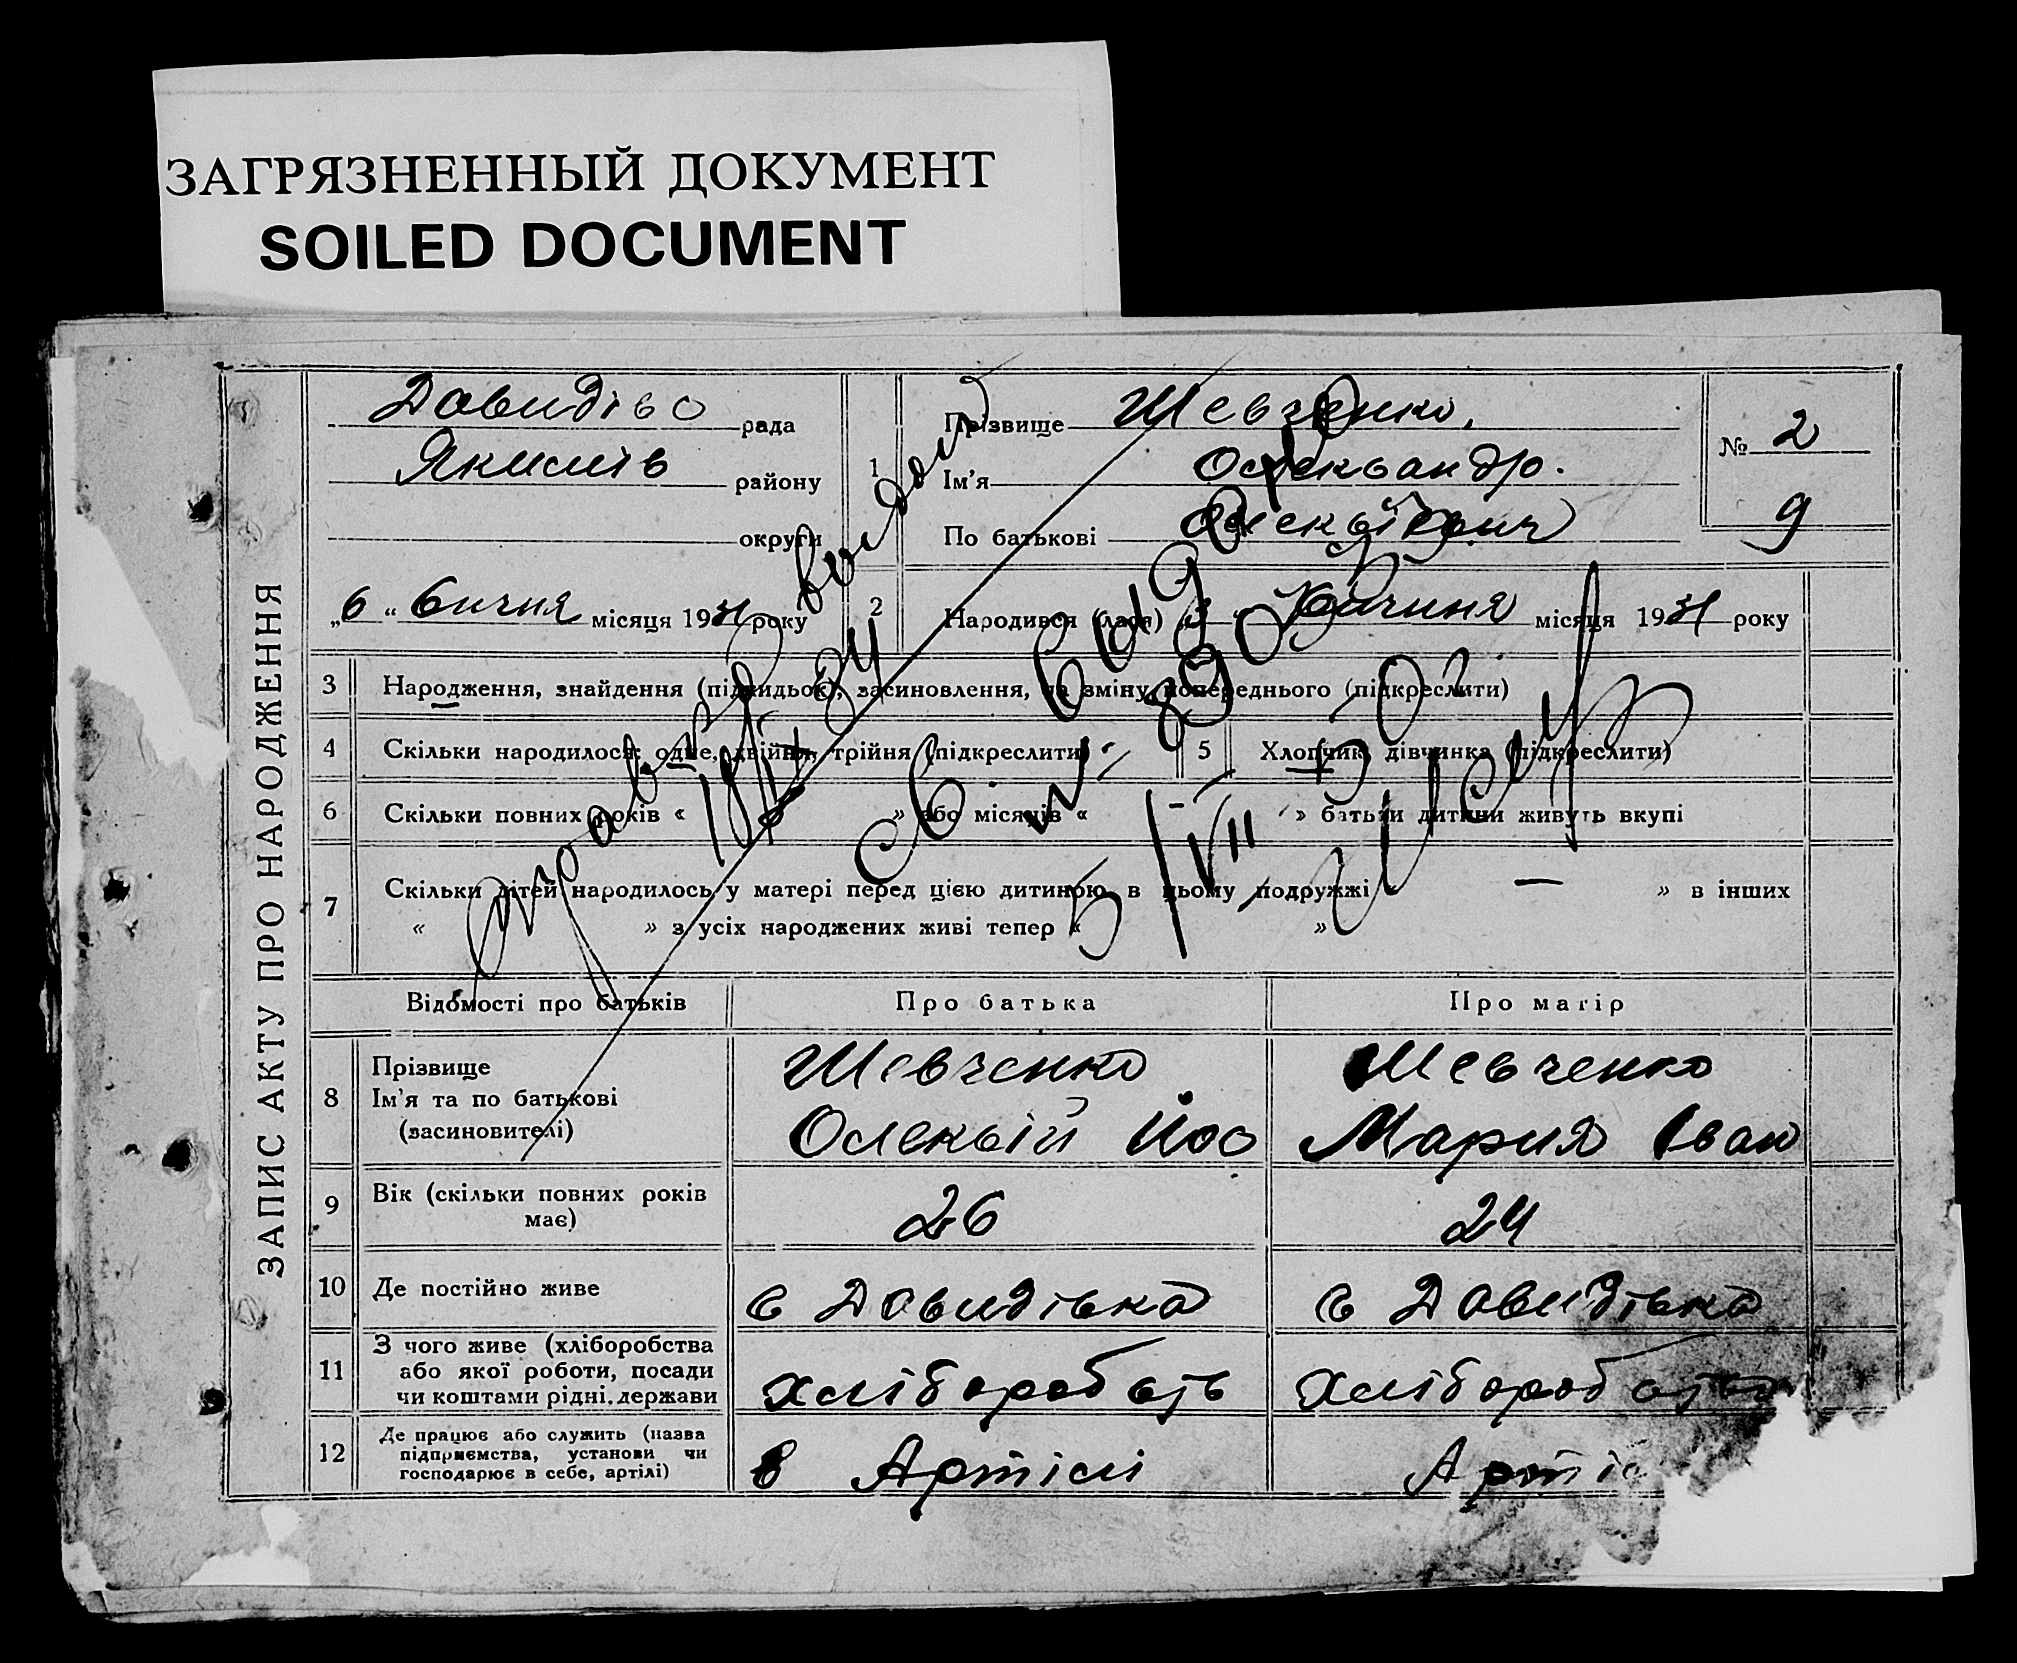 ЗАГРЯЗНЕННЫЙ ДОКУМЕНТ
SOILED DOCUMENT
ЗАПИС АКТУ ПРО НАРОДЖЕННЯ
Давидіво рада
району
округи
„6“ Січня місяця 1931 року
1 Прізвище Шевченко,
Ім'я Олександр.
По батькові Олексійович
№ 2
9
2 Народився (лася) 3 Січня місяця 1931 року
3 Народження, знайдення (підкидьок), засиновлення, та зміну попереднього (підкреслити)
4 Скільки народилося: одне, двійня, трійня (підкреслити)
5 Хлопчик, дівчинка (підкреслити)
6 Скільки повних років « » або місяців « - » батьки дитини живуть вкупі
7 Скільки дітей народилось у матері перед цією дитиною в цьому подружжі — » в інших
« » з усіх народжених живі тепер « »
справка выдана
Відомості про батьків Про батька Про матір
8 Прізвище Шевченко Шевченко
Ім'я та по батькові Олексій Йос Мария Іван
(засиновителі)
9 Вік (скільки повних років має) 26 24
10 Де постійно живе с Давидівка с Давидівка
11 З чого живе (хліборобства
або якої роботи, посади
чи коштами рідні, держави
хлібороб
хлібороб
12 Де працює або служить (назва
підприємства, установи чи
господарює в себе, артілі)
в Артілі
Артіл